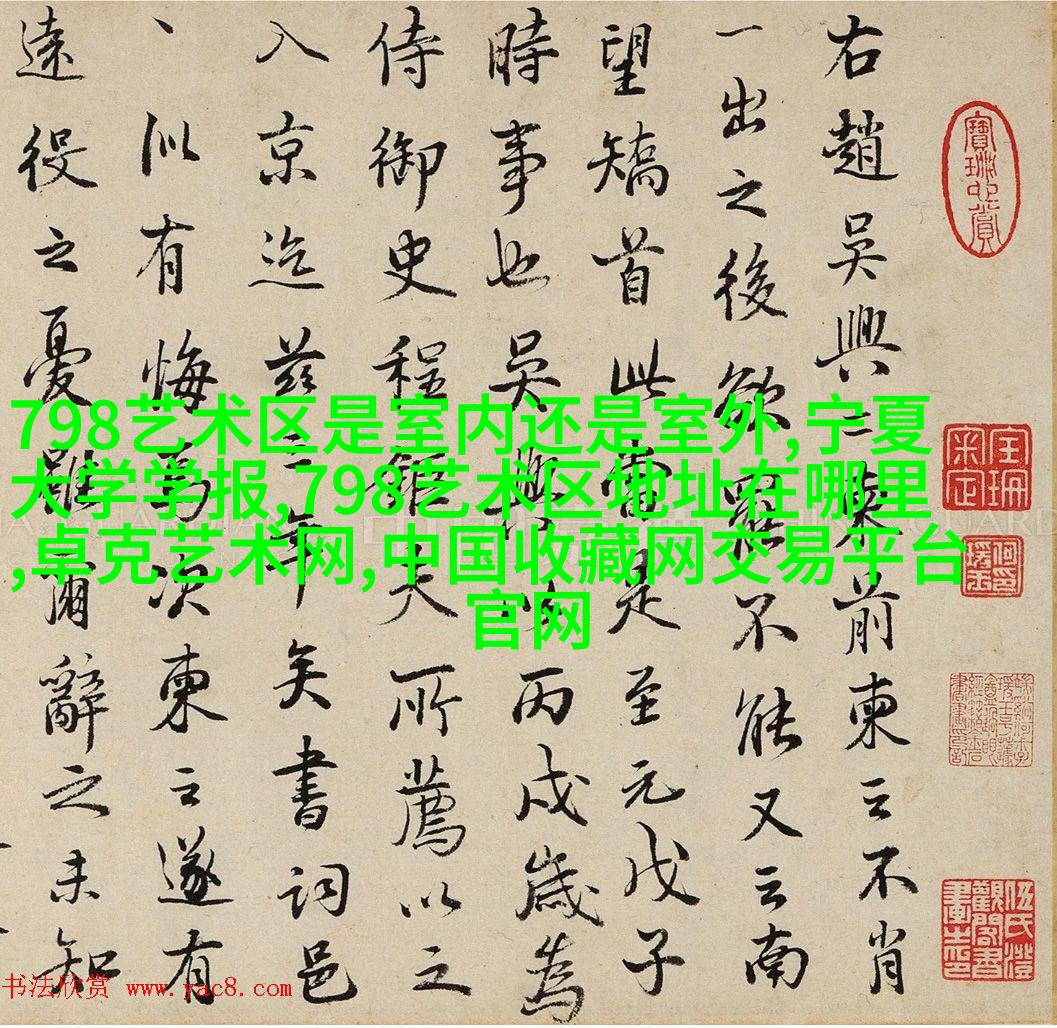 右趙吳興二柬前柬云不肖
一出之後欲罷不能又云南
望矯首此當是至元戊子
時事也吳興以丙戌歲為
侍御史程鉅夫所薦以之
入京迄茲三年矣書詞邑
、似有悔焉次柬云遂有
遠役之憂雖爾辭之未知
798艺术区是室内还是室外,宁夏
大学学报,798艺术区地址在哪里
,卓克艺术网,中国收藏网交易平台
官网
书法欣赏 www.yac8.com